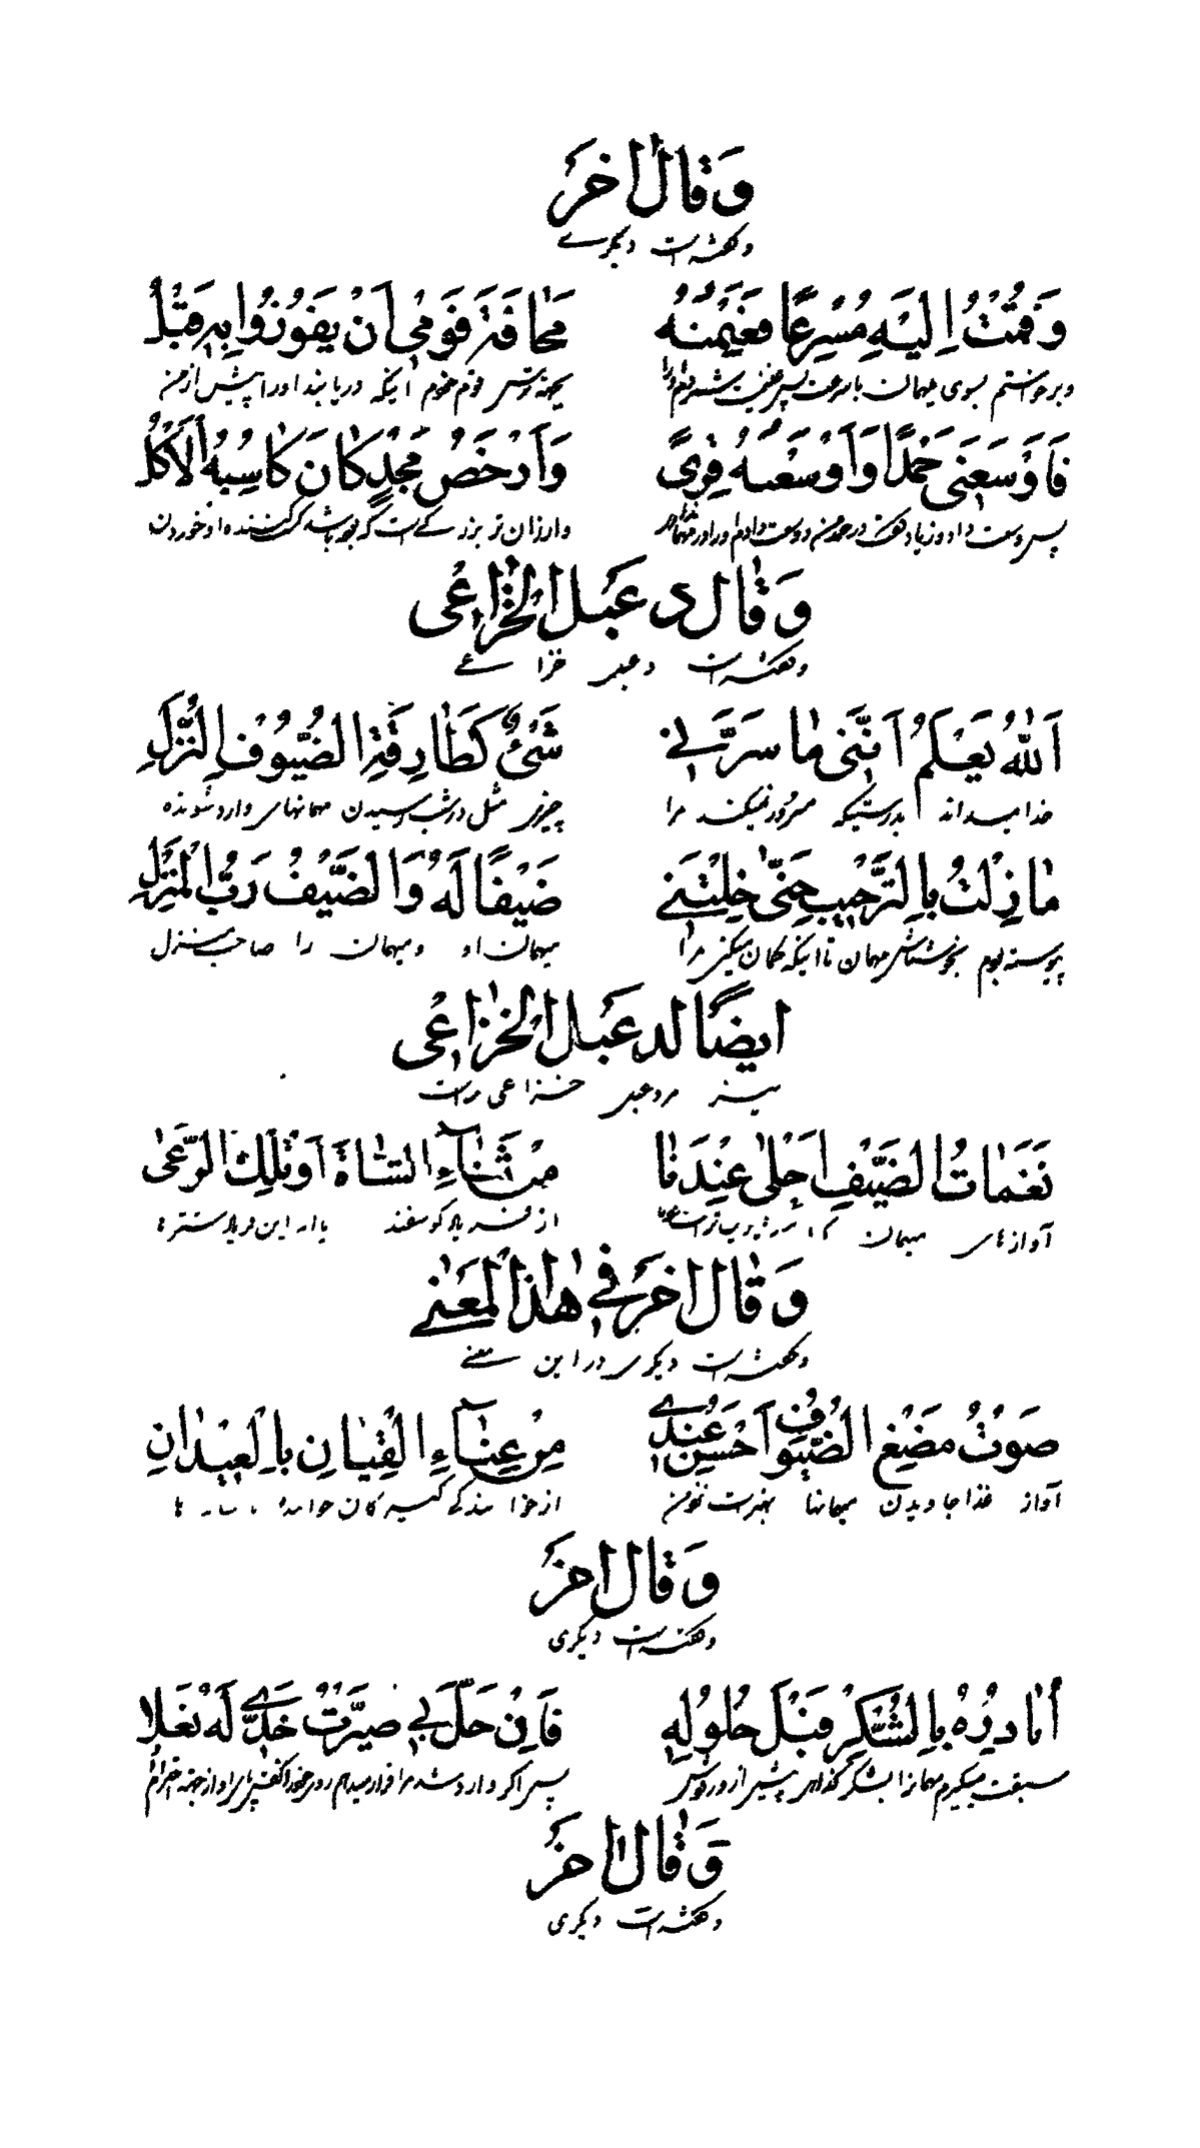 وَقَالَ اٰخَرُ
و گفته است دیگرے
وَقُمْتُ اِلَيْهِ مُسْرِعًا فَغَنِمْتُهُ مَخَافَةَ قَوْمِي اَنْ يَفُوزُوا بِهِ قَبْلُ
و برخواستم بسوی میهمان بسرعت پس غنیمت شمردم او را بجهة ترس قوم خودم اینکه دریابند او را پیش از من
فَاَوْسَعَنِي حَمْدًا وَاَوْسَعْتُهُ قِرىً وَاَرْخَصُ مَجْدٍ كَانَ كَاسِبُهُ الْاَكْلُ
پس وسعت داد و زیاد گفت در حمد من و وسعت دادم و ارزان تر بزرگے است که بوده باشد کسب کننده او خوردن
وَقَالَ دِعْبِلُ الْخُزَاعِي
و گفته است دعبل خزاعے
اَللهُ يَعْلَمُ اَنَّنِي مَا سَرَّنِي شَيْئٌ كَطَارِقَةِ الضُّيُوْفِ النُّزَّلِ
خدا میداند بدرستیکه مسرور نمیکند مرا چیزی مثل در شب رسیدن مهمانهای وارد شونده
مَا زِلْتُ بِالتَّرْحِيبِ حَتّٰى خِلْتَنِي ضَيْفًا لَهُ وَالضَّيْفُ رَبُّ الْمَنْزِلِ
پیوسته بودم بخوش مهمان تا اینکه گمان میکنی مرا میهمان او و میهمان را صاحب منزل
اَيضًا لِدِعْبِلِ الْخُزَاعِي
نیز مر دعبل خزاعی راست
نَغَمَاتُ الضَّيْفِ اَحْلٰى عِنْدَنَا مِنْ ثُغَاءِ الشَّاةِ اَوْ تِلْكَ الرُّغٰى
آوازهای میهمان از گوسفند یا از این
وَقَالَ اٰخَرُ فِي هٰذَا الْمَعْنٰى
و گفته است دیگری در این معنے
صَوْتُ مَضْغِ الضُّيُوفِ اَحْسَنُ عِنْدِي مِنْ غِنَاءِ الْقِيَانِ بِالْعِيدَانِ
آواز غذا جاویدن میهمانها بهتر است نزد من از خوانندگی کنیزکان
وَقَالَ اٰخَرُ
و گفته است دیگری
اُبَادِرُهُ بِالشُّكْرِ قَبْلَ حُلُولِهِ فَاِنْ حَلَّ بِي صَيَّرْتُ خَدِّي لَهُ نَعْلًا
سبقت میگیرم مهمانرا بشکر گذاری پیش از ورودش پس اگر وارد شد مرا قرار میدهم روی خود را کفش برای او از جهة احترام
وَقَالَ اٰخَرُ
و گفته است دیگری